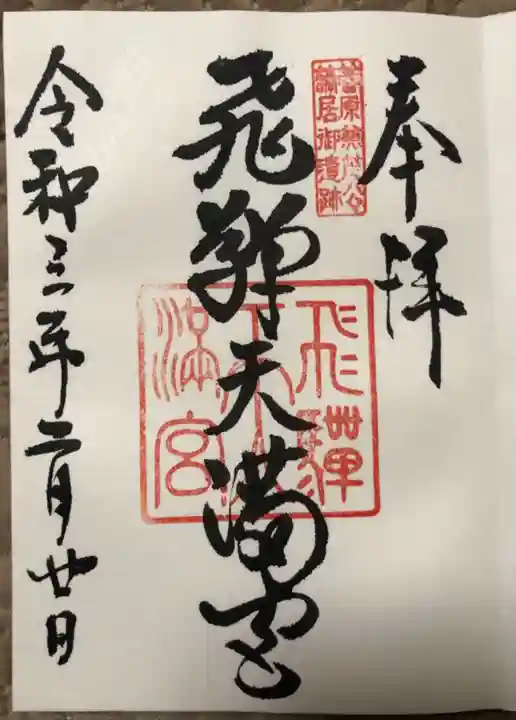 奉拝
菅原兼茂公
謫居御遺跡
飛騨天満宮
飛騨
天満宮
令和三年二月廿日